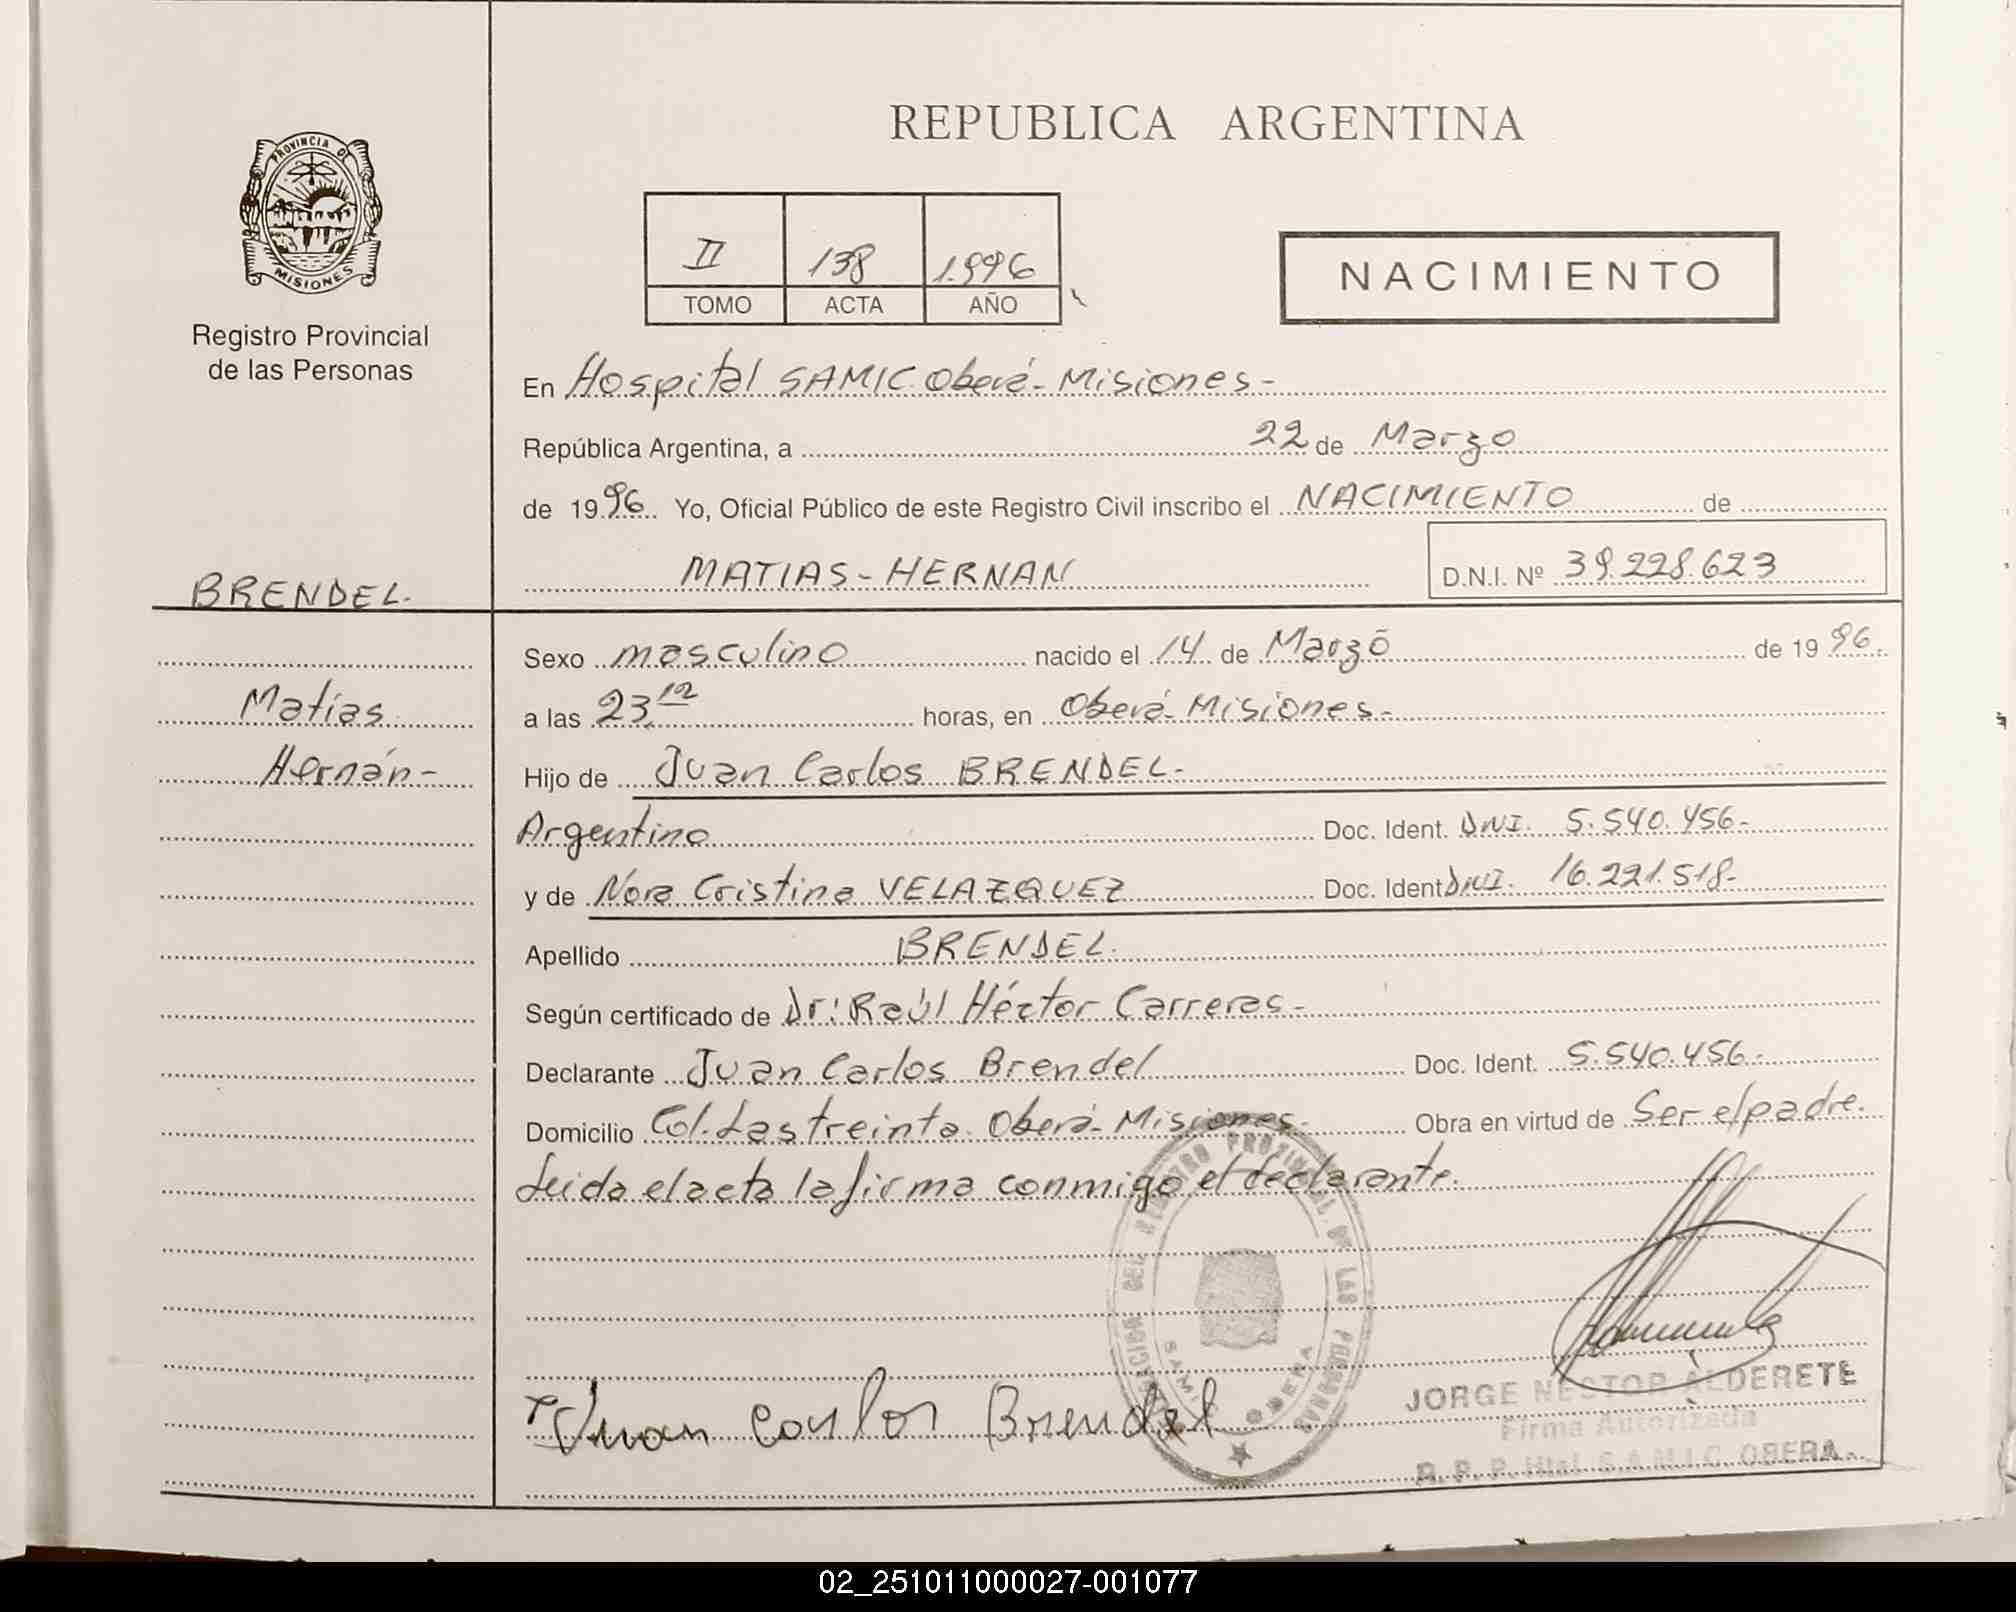 REPUBLICA ARGENTINA
PROVINCIA DE
MISIONES
Registro Provincial
de las Personas
II 138 1.996
TOMO ACTA AÑO
NACIMIENTO
En Hospital SAMIC. Oberá- Misiones-
República Argentina, a 22 de Marzo
de 1996. Yo, Oficial Público de este Registro Civil inscribo el NACIMIENTO de
MATIAS-HERNAN D.N.I. Nº 39.228.623
BRENDEL.
Matías
Hernán-
Sexo masculino nacido el 14 de Marzo de 1996.
a las 23,12 horas, en Oberá- Misiones-
Hijo de Juan Carlos BRENDEL-
Argentino Doc. Ident. DNI. 5.540.456-
y de Nora Cristina VELAZQUEZ Doc. Ident DNI. 16.221.518-
Apellido BRENDEL.
Según certificado de Dr: Raúl Héctor Carreras-
Declarante Juan Carlos Brendel Doc. Ident. 5.540.456-
Domicilio Col. Las treinta. Oberá- Misiones- Obra en virtud de Ser el padre.
Leida el acta la firma conmigo el declarante.
REGISTRO PROVINCIAL DE LAS PERSONAS
OBERA
Juan Carlos Brendel
JORGE NESTOR ALDERETE
Firma Autorizada
R. P. P. Htal. S.A.M.I.C. OBERA
02_251011000027-001077